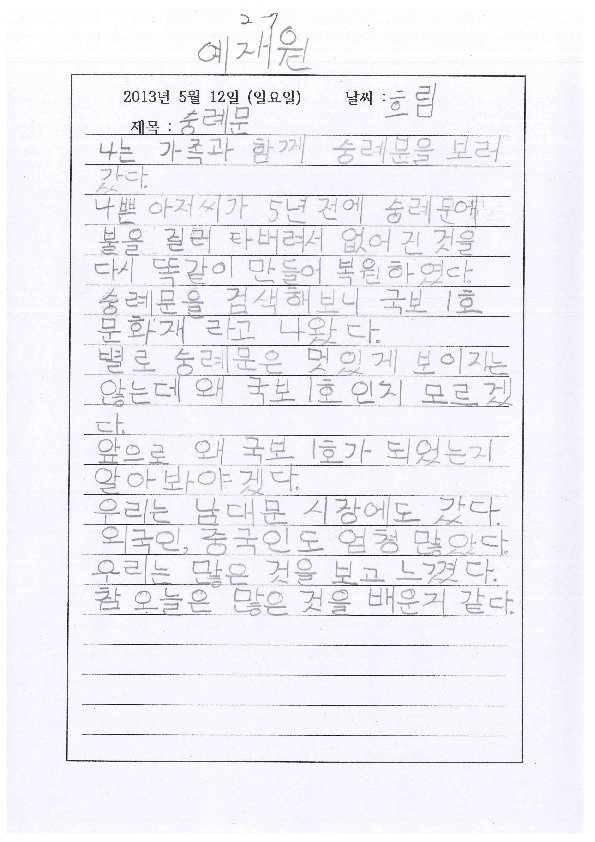 2-7
예재원
2013년 5월 12일 (일요일) 날씨 : 흐림
제목 : 숭례문
나는 가족과 함께 숭례문을 보러
갔다.
나쁜 아저씨가 5년 전에 숭례문에
불을 질러 타버려서 없어진 것을
다시 똑같이 만들어 복원하였다.
숭례문을 검색해보니 국보 1호
문화재 라고 나왔다.
별로 숭례문은 멋있게 보이지는
않는데 왜 국보 1호 인지 모르겠
다.
앞으로 왜 국보 1호가 되었는지
알아봐야겠다.
우리는 남대문 시장에도 갔다.
외국인, 중국인도 엄청 많았다.
우리는 많은 것을 보고 느꼈다.
참 오늘은 많은 것을 배운지 같다.